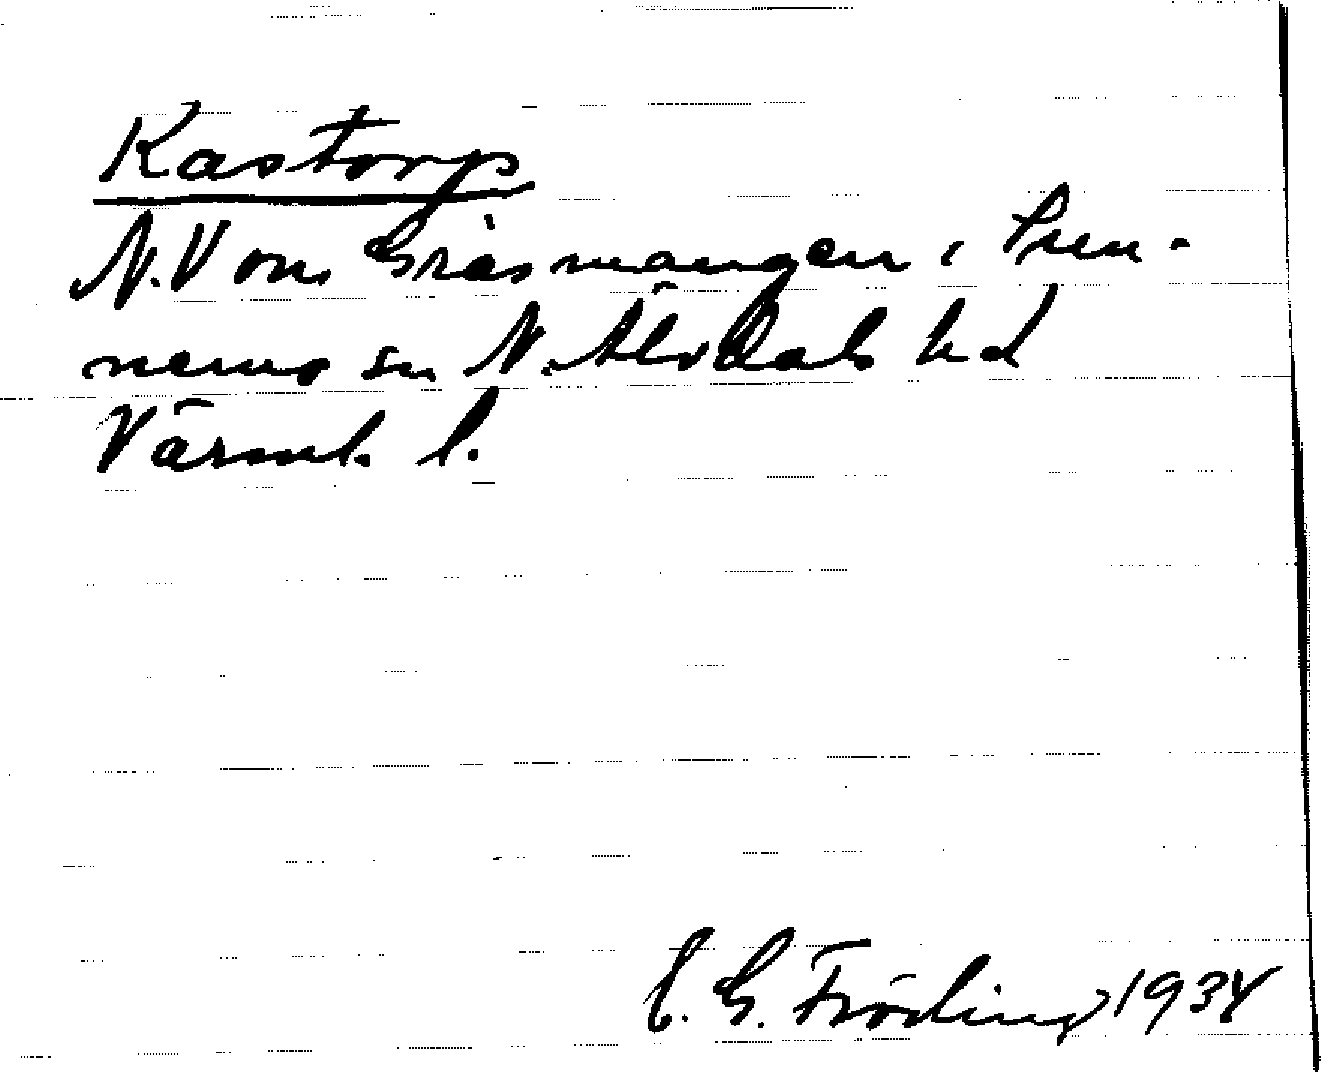 Kastorp
N.V om Gräsmangen i Sun-
nemo sn N. Älvdals hd
Värml. l.
E. G. Fröding 1934